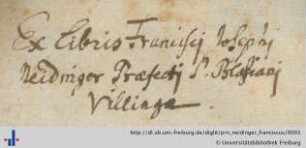 Ex Libris Francisci Josephi
Neidinger Præfecti S. Blasiani
Villingæ.
http://dl.ub.uni-freiburg.de/diglit/prn_neidinger_franciscus/0001
© Universitätsbibliothek Freiburg